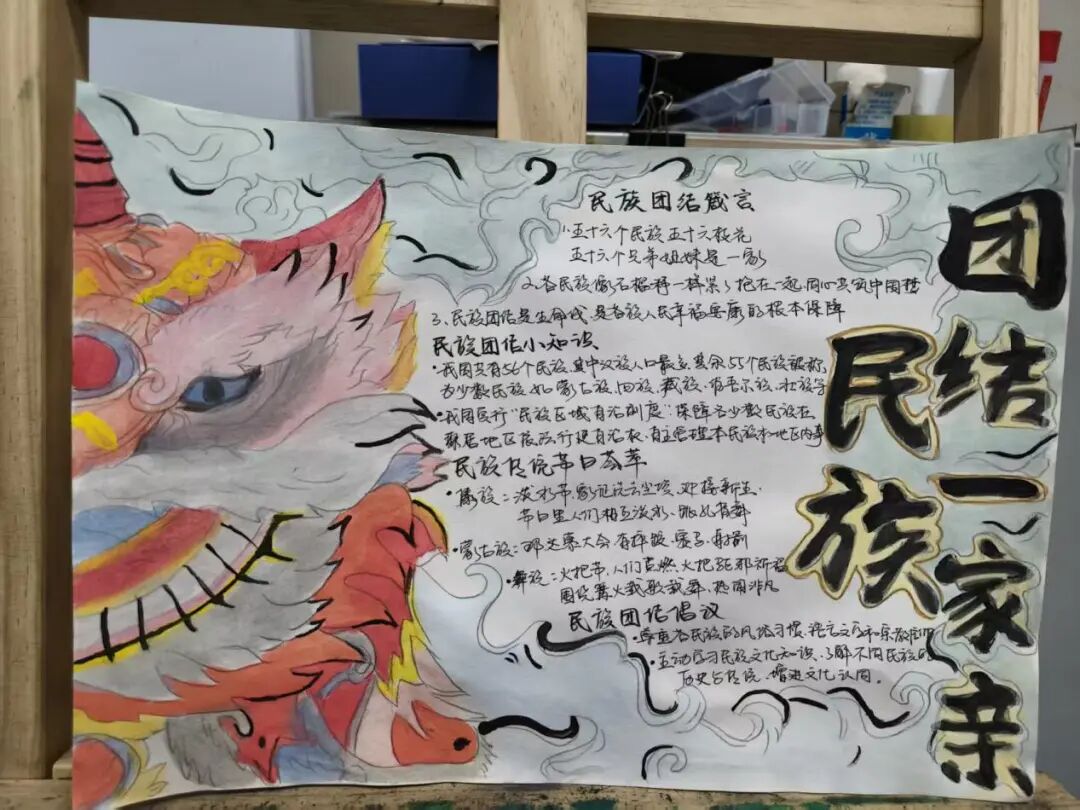 民族团结一家亲
民族团结箴言
1、五十六个民族五十六枝花
五十六个兄弟姐妹是一家
2、各民族像石榴籽一样紧紧抱在一起,同心共筑中国梦
3、民族团结是生命线,是各族人民幸福安康的根本保障
民族团结小知识
·我国共有56个民族,其中汉族人口最多,其余55个民族被称
为少数民族,如蒙古族、回族、藏族、维吾尔族、壮族等
·我国实行"民族区域自治制度":保障各少数民族在
聚居地区依法行使自治权,自主管理本民族本地区内事
民族传统节日荟萃
·傣族:泼水节,
节日里人们相互泼水、
·蒙古族:那达慕大会,有摔跤、赛马、射箭
·彝族:火把节,人们点燃火把驱邪祈福
围绕篝火载歌载舞、热闹非凡
民族团结倡议
·尊重各民族的风俗习惯、语言文字和宗教信仰
·主动学习民族文化知识、了解不同民族的
历史与传统,增进文化认同。